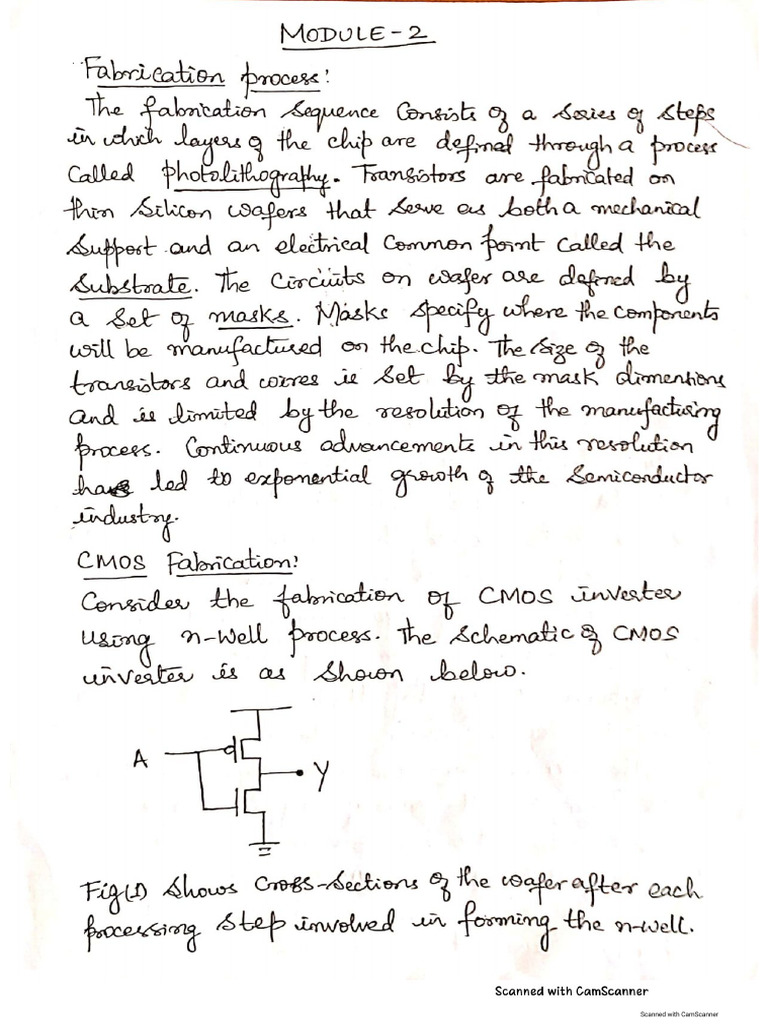 MODULE-2
Fabrication process:
The fabrication sequence consists of a series of steps
in which layers of the chip are defined through a process
called photolithography. Transistors are fabricated on
thin silicon wafers that serve as both a mechanical
support and an electrical common point called the
substrate. The circuits on wafer are defined by
a set of masks. Masks specify where the components
will be manufactured on the chip. The size of the
transistors and wires is set by the mask dimensions
and is limited by the resolution of the manufacturing
process. Continuous advancements in this resolution
have led to exponential growth of the semiconductor
industry.
CMOS Fabrication:
Consider the fabrication of CMOS inverter
using n-well process. The schematic of CMOS
inverter is as shown below.
A
Y
Fig(1) shows cross-sections of the wafer after each
processing step involved in forming the n-well.
Scanned with CamScanner
Scanned with CamScanner